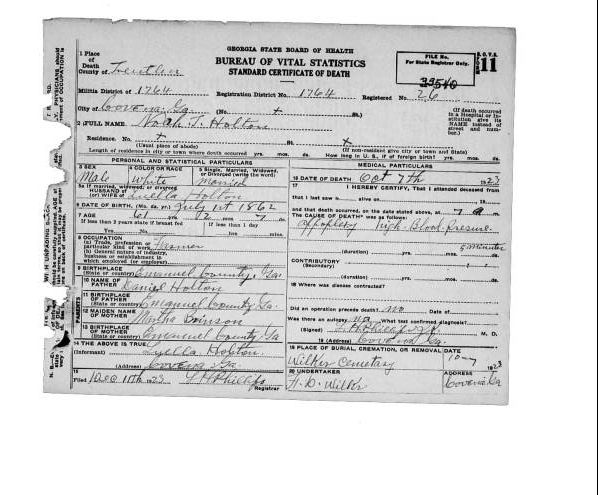 GEORGIA STATE BOARD OF HEALTH
BUREAU OF VITAL STATISTICS
STANDARD CERTIFICATE OF DEATH
FILE No.
For State Registrar Only.
11
1 Place of Death
County of Treutlen
Militia District of 1764 Registration District No. 1764 Registered No. 26
City of Covena, Ga. (No. + St.)
(If death occurred in a Hospital or Institution give its NAME instead of street and number.)
2 FULL NAME. Noah J. Holton
Residence. No. + St. +
(Usual place of abode) (If non-resident give city or town and State)
Length of residence in city or town where death occurred yrs. mos. ds. How long in U. S., if of foreign birth? yrs. mos. ds.
PERSONAL AND STATISTICAL PARTICULARS
3 SEX Male
4 COLOR OR RACE White
5 Single, Married, Widowed, or Divorced (write the word) Married
5a If married, widowed, or divorced
HUSBAND of
(or) WIFE of Luella Holton
6 DATE OF BIRTH, (Mo. da. yr.) July 1st 1862
7 AGE 61 yrs. 2 mos. 7 ds.
If less than 2 years state if breast fed If less than 1 day
Yes No hrs. min.
8 OCCUPATION
(a) Trade, profession or particular kind of work Farmer
(b) General nature of industry, business or establishment in which employed (or employer)
9 BIRTHPLACE
(State or country) Emanuel County, Ga.
10 NAME OF FATHER Daniel Holton
11 BIRTHPLACE OF FATHER
(State or country) Emanuel County Ga.
12 MAIDEN NAME OF MOTHER Martha Brinson
13 BIRTHPLACE OF MOTHER
(State or country) Emanuel County Ga
14 THE ABOVE IS TRUE
(Informant) Luella Holton,
(Address) Covena Ga.
15
Filed Dec 11th 1923 Registrar
MEDICAL PARTICULARS
16 DATE OF DEATH Oct 7th 1923
17 I HEREBY CERTIFY, That I attended deceased from
that I last saw h alive on 19
and that death occurred, on the date stated above, at 7 a m.
The CAUSE OF DEATH was as follows:
Appoplexy High Blood Presure
(duration) yrs. mos. ds.
CONTRIBUTORY
(Secondary)
(duration) yrs. mos. ds.
18 Where was disease contracted?
Did an operation precede death? no Date of
Was there an autopsy? no What test confirmed diagnosis?
(Signed) M. D.
19 (Address) Covena Ga.
19 PLACE OF BURIAL, CREMATION, OR REMOVAL DATE
Wilkes Cemetary 10-7 1923
20 UNDERTAKER ADDRESS
H. D. Wilkes Covena Ga